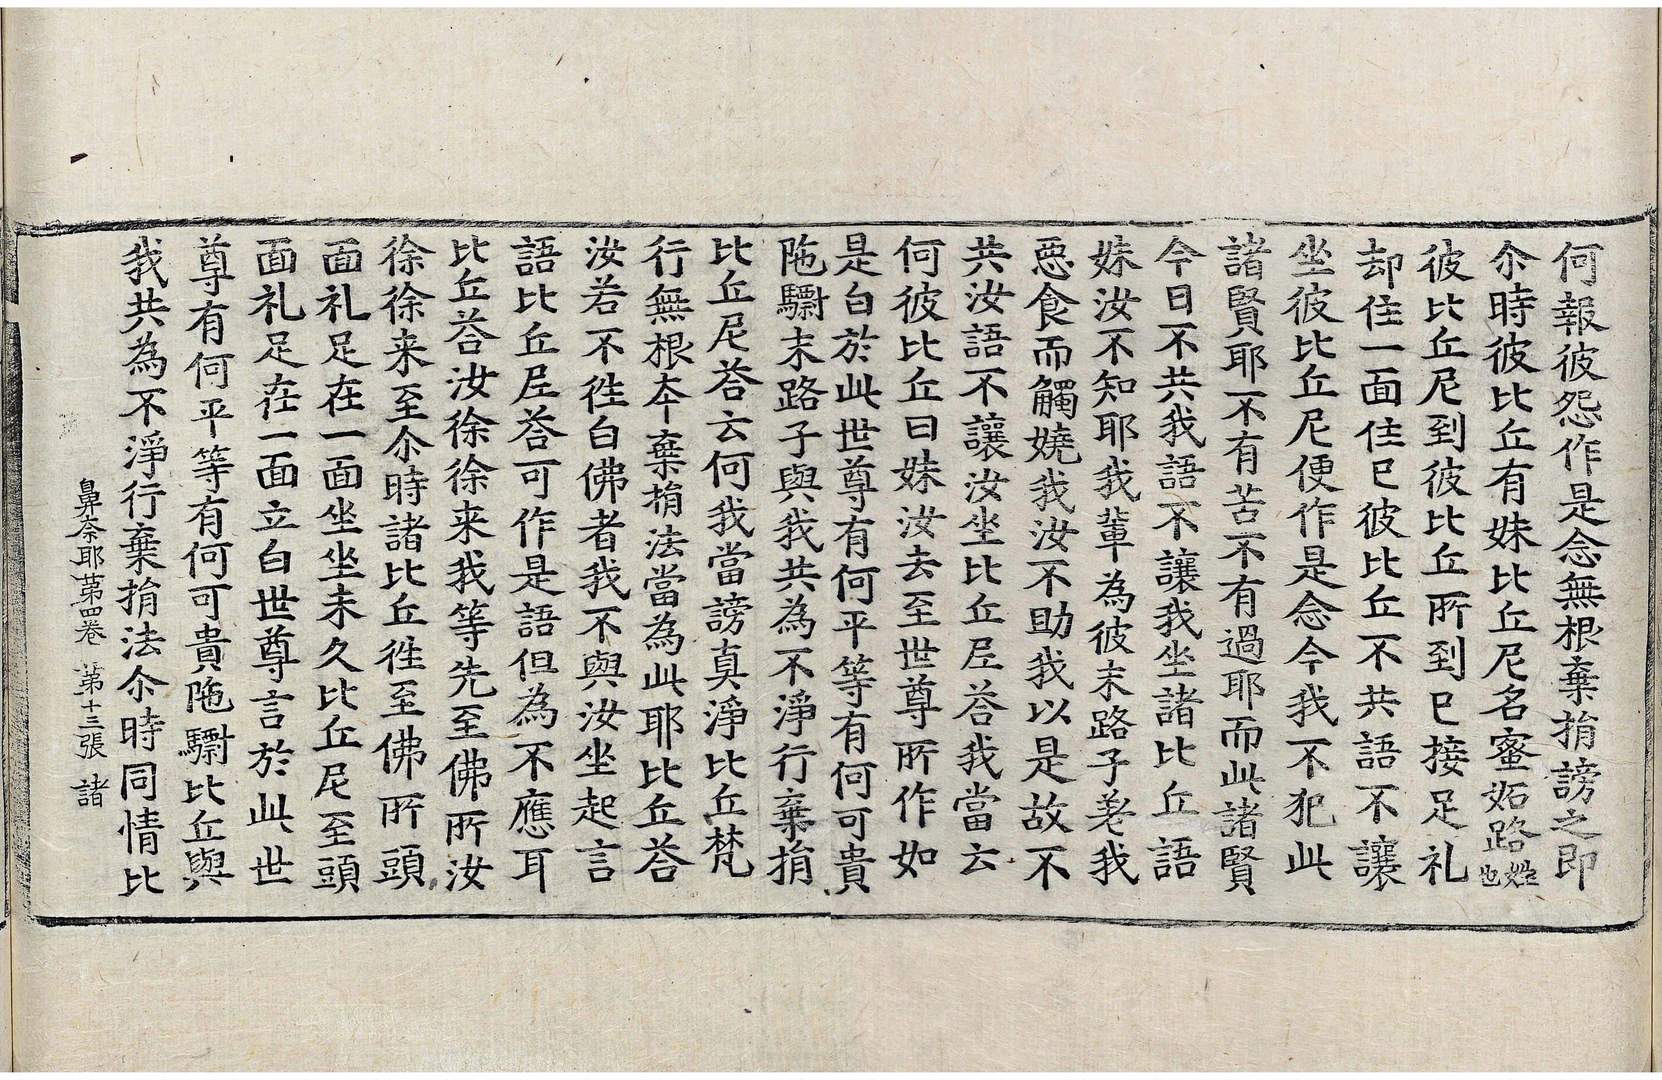 何報彼怨作是念無根棄捐謗之即
尒時彼比丘有妹比丘尼名蜜妬路姓也
彼比丘尼到彼比丘所到已接足礼
却住一面住已彼比丘不共語不讓
坐彼比丘尼便作是念今我不犯此
諸賢耶不有苦不有過耶而此諸賢
今日不共我語不讓我坐諸比丘語
妹汝不知耶我輩為彼末路子羞我
惡食而觸嬈我汝不助我以是故不
共汝語不讓汝坐比丘尼荅我當云
何彼比丘曰妹汝去至世尊所作如
是白於此世尊有何平等有何可貴
陁驃末路子與我共為不淨行棄捐
比丘尼荅云何我當謗真淨比丘梵
行無根夲棄捐法當為此耶比丘荅
汝若不徃白佛者我不與汝坐起言
語比丘尼荅可作是語但為不應耳
比丘荅汝徐徐来我等先至佛所汝
徐徐来至尒時諸比丘徃至佛所頭
面礼足在一面坐坐未久比丘尼至頭
面礼足在一面立白世尊言於此世
尊有何平等有何可貴陁驃比丘與
我共為不淨行棄捐法尒時同情比
鼻奈耶第四卷 第十三張 諸